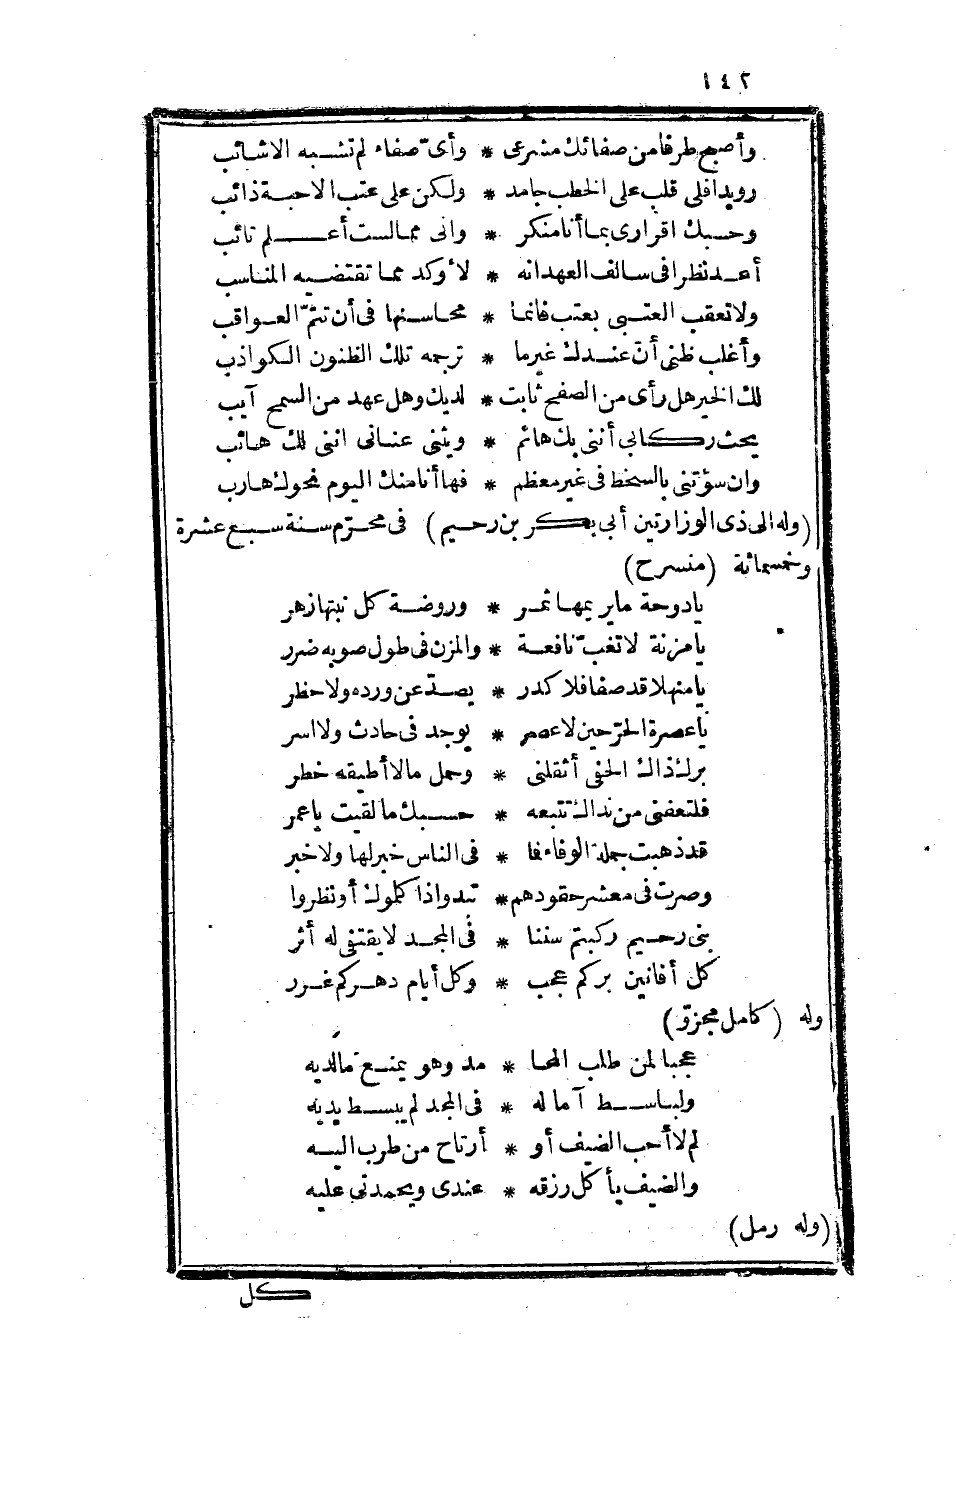 ١٤٢
وأصبح طرقا من صفائك مشرعى * وأىّ صفاء لم تشبه الاشائب
رويدا فلى قلب على الخطب جامد * ولكن على عتب الاحبة ذائب
وحسبك اقرارى بما أنا منكر * وانى مما لست أعلم تائب
أعد نظرا فى سالف العهد انه * لأوكد مما تقتضيه المناسب
ولا تعقب العتبى بعتب فانما * محاسنها فى أن تتمّ العواقب
وأغلب ظنى أنّ عندك غير ما * ترجمه تلك الظنون الكواذب
لك الخير هل رأى من الصفح ثابت * لديك وهل عهد من السمح آيب
يحث ركابى أننى بك هائم * ويثنى عنانى اننى لك هائب
وان سؤتنى بالسخط فى غير معظم * فها أنا منك اليوم نحوك هارب
(وله الى ذى الوزارتين أبى بكر بن رحيم) فى محرّم سنة سبع عشرة
وخمسمائة (منسرح)
يا دوحة ما يريمها ثمر * وروضة كل نبتها زهر
يا مزنة لا تغبّ نافعة * والمزن فى طول صوبه ضرر
يا منهلا قد صفا فلا كدر * يصدّ عن ورده ولا حظر
يا عصرة الحرّ حين لا عصر * يوجد فى حادث ولا اسر
برك ذاك الحفى أثقلنى * وحمل ما لا أطيقه خطر
فلتعفنى من نداك تتبعه * حسبك ما لقيت يا عمر
قد ذهبت جملة الوفاء فما * فى الناس خبر لها ولا خبر
وصرت فى معشر حقودهم * تبدو اذا كلموك أو نظروا
بنى رحيم ركبتم سننا * فى المجد لا يقتفى له أثر
كل أفانين بركم عجب * وكل أيام دهركم غرر
وله (كامل مجزوّ)
عجبا لمن طلب المحا * مد وهو يمنع ما لديه
ولباسط آماله * فى المجد لم يبسط يديه
لم لا أحب الضيف أو * أرتاح من طرب اليه
والضيف يأكل رزقه * عندى ويحمدنى عليه
(وله رمل)
كل